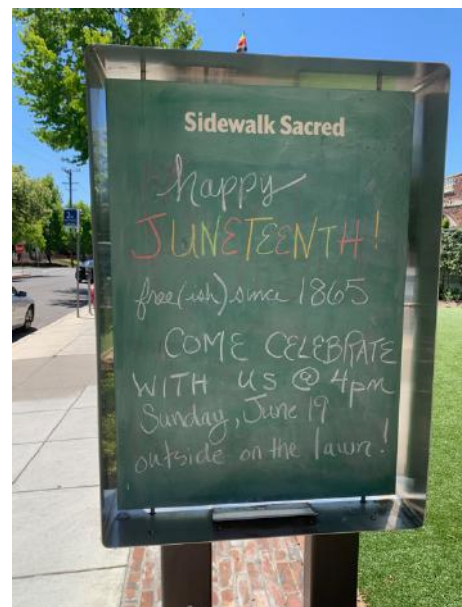 Sidewalk Sacred
happy
JUNETEENTH!
free(ish) since 1865
COME CELEBRATE
WITH US @ 4pm
Sunday, June 19
outside on the lawn!